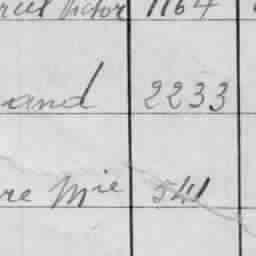 Victor 1164
and 2233
re Mie 541